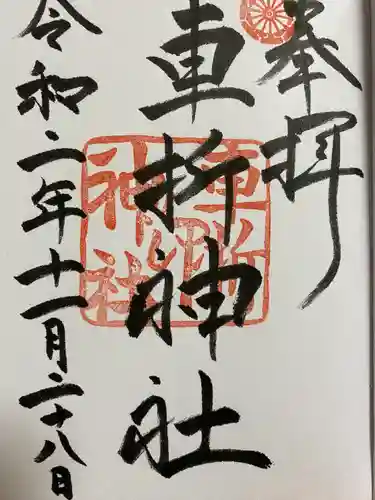 奉拝
車折神社
令和二年十一月二十八日
車折神社